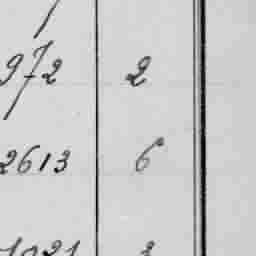 972 2
2613 6